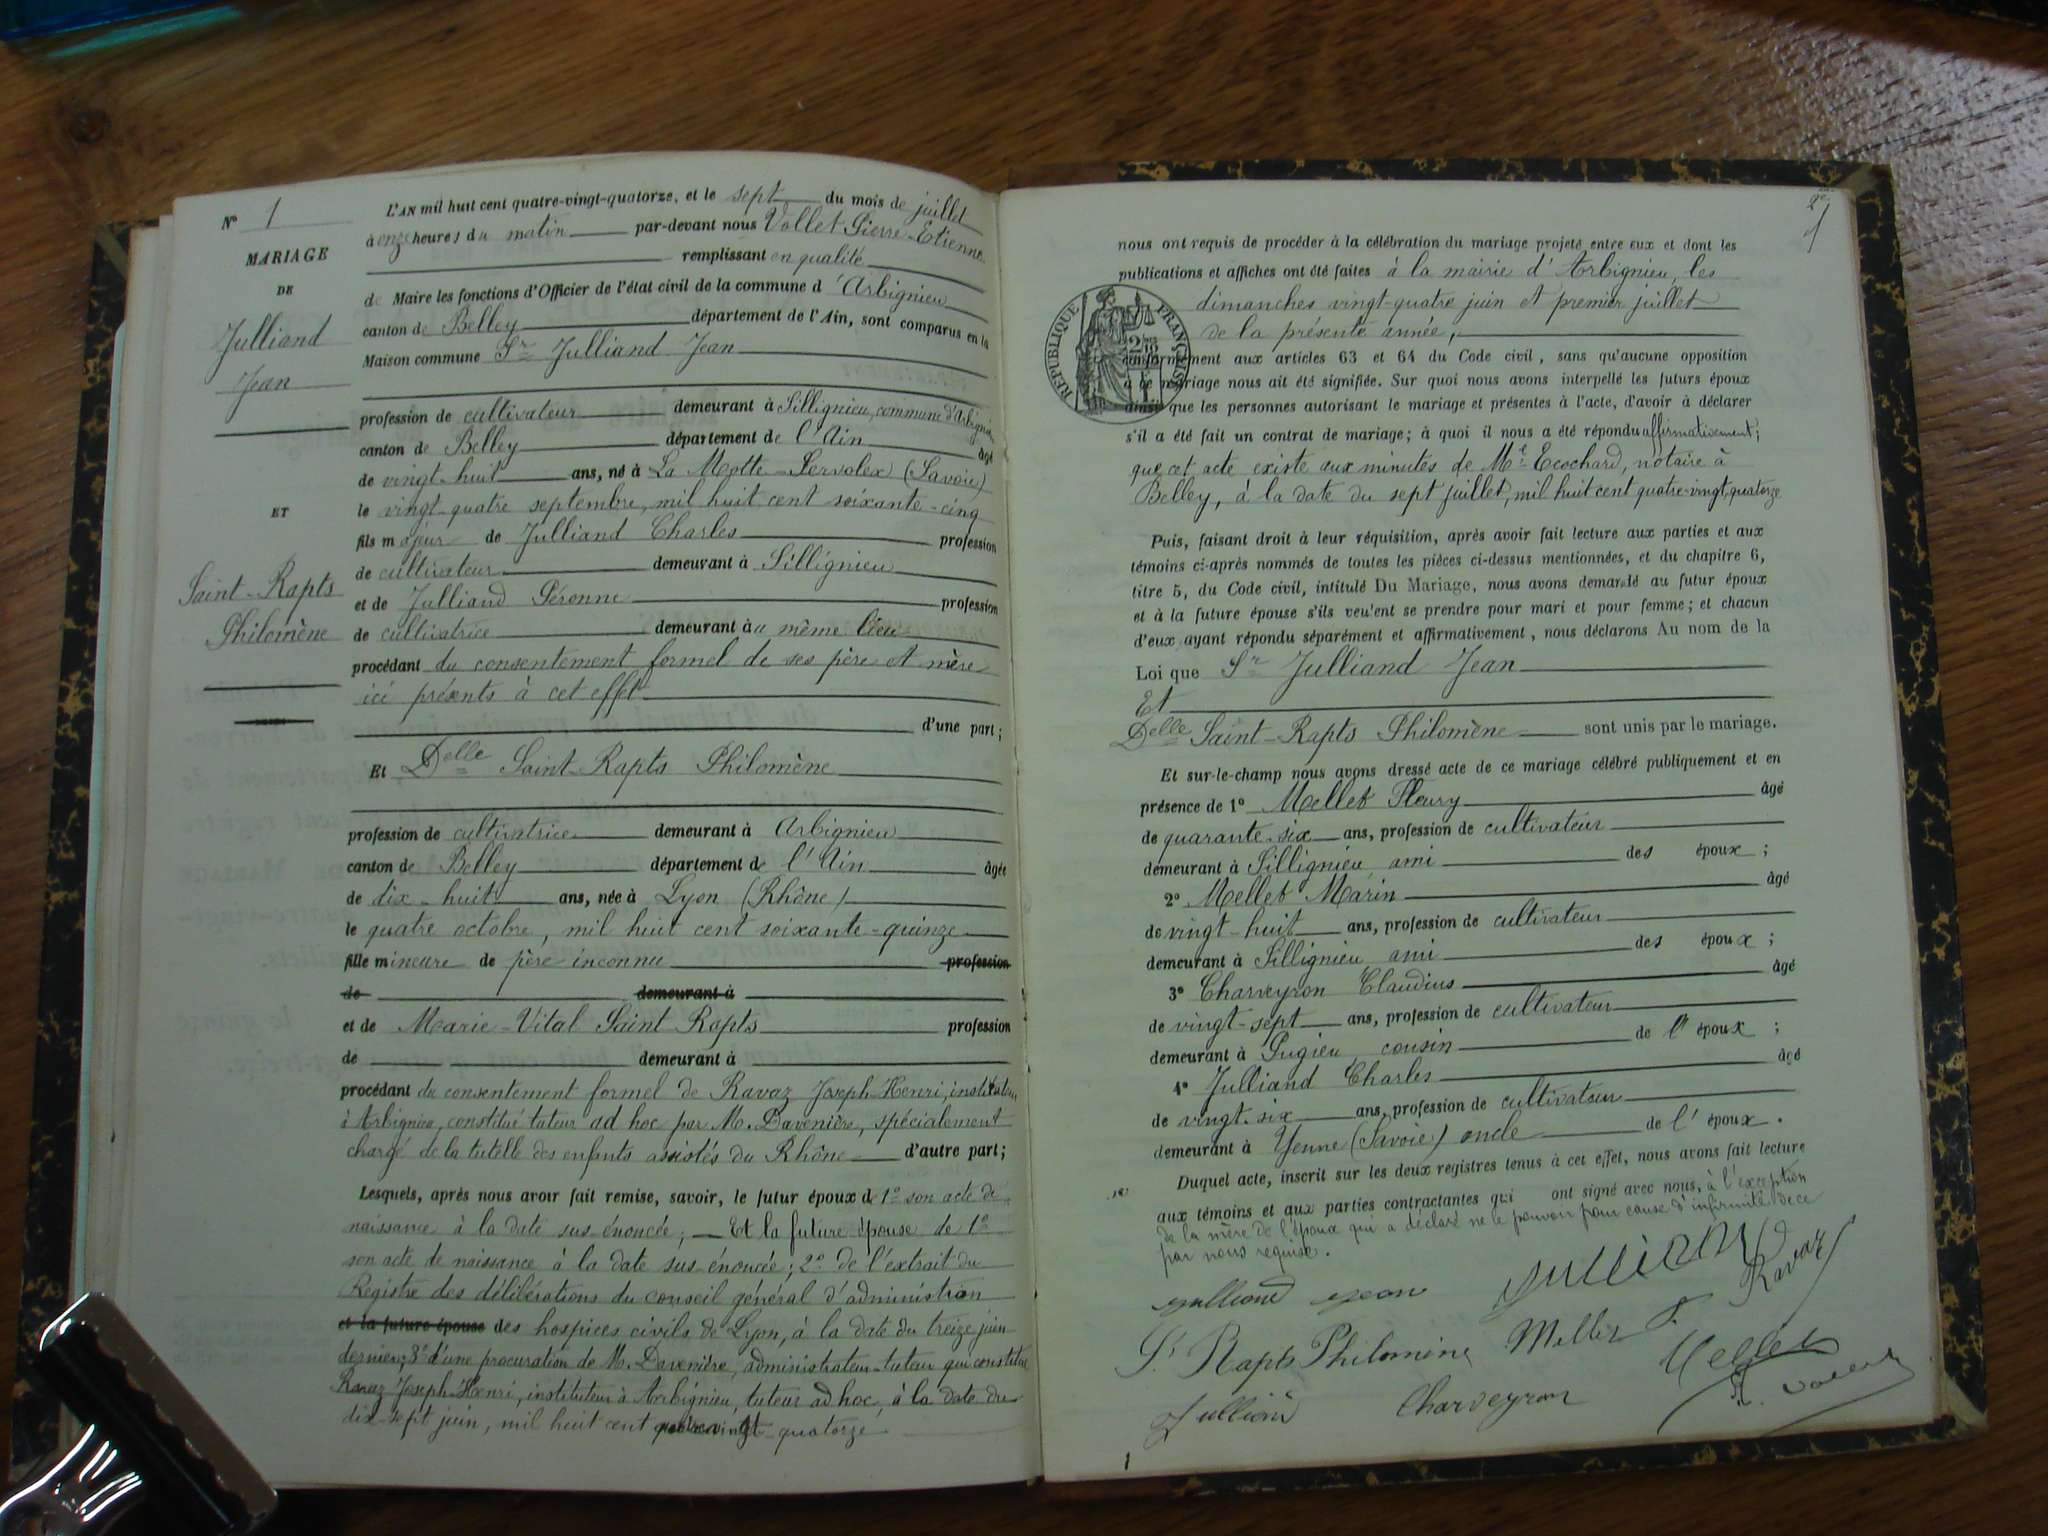 N° 1
MARIAGE
DE
Julliand
Jean
ET
Saint-Rapts
Philomène
L'AN mil huit cent quatre-vingt-quatorze, et le sept du mois de juillet
à onze heures du matin par-devant nous Vollet Pierre-Etienne
remplissant en qualité
de Maire les fonctions d'Officier de l'état civil de la commune d'Arbignieu
canton de Belley département de l'Ain, sont comparus en la
Maison commune Sr Julliand Jean
profession de cultivateur demeurant à Sillignieu, commune d'Arbignieu
canton de Belley département de l'Ain âgé
de vingt-huit ans, né à La Motte-Servolex (Savoie)
le vingt-quatre septembre, mil huit cent soixante-cinq
fils majeur de Julliand Charles profession
de cultivateur demeurant à Sillignieu
et de Julliand Péronne profession
de cultivatrice demeurant au même lieu
procédant du consentement formel de ses père et mère
ici présents à cet effet
d'une part;
Et Delle Saint-Rapts Philomène
profession de cultivatrice demeurant à Arbignieu
canton de Belley département de l'Ain âgée
de dix-huit ans, née à Lyon (Rhône)
le quatre octobre, mil huit cent soixante-quinze
fille mineure de père inconnu profession
de demeurant à
et de Marie-Vital Saint Rapts profession
de demeurant à
procédant du consentement formel de Ravaz Joseph-Henri, instituteur
à Arbignieu, constitué tuteur ad hoc par M. Davenière, spécialement
chargé de la tutelle des enfants assistés du Rhône d'autre part;
Lesquels, après nous avoir fait remise, savoir, le futur époux de 1° son acte de
naissance à la date sus-énoncée; — Et la future épouse de 1°
son acte de naissance à la date sus-énoncée; 2° de l'extrait du
Registre des délibérations du conseil général d'administration
et la future épouse des hospices civils de Lyon, à la date du treize juin
dernier; 3° d'une procuration de M. Davenière, administrateur-tuteur qui constitue
Ravaz Joseph-Henri, instituteur à Arbignieu, tuteur ad hoc, à la date du
dix-sept juin, mil huit cent quatre vingt-quatorze
nous ont requis de procéder à la célébration du mariage projeté entre eux et dont les
publications et affiches ont été faites à la mairie d'Arbignieu, les
dimanches vingt-quatre juin et premier juillet
de la présente année,
RÉPUBLIQUE FRANÇAISE
conformément aux articles 63 et 64 du Code civil, sans qu'aucune opposition
à ce mariage nous ait été signifiée. Sur quoi nous avons interpellé les futurs époux
ainsi que les personnes autorisant le mariage et présentes à l'acte, d'avoir à déclarer
s'il a été fait un contrat de mariage; à quoi il nous a été répondu affirmativement;
que cet acte existe aux minutes de Me Ecochard, notaire à
Belley, à la date du sept juillet, mil huit cent quatre-vingt-quatorze
Puis, faisant droit à leur réquisition, après avoir fait lecture aux parties et aux
témoins ci-après nommés de toutes les pièces ci-dessus mentionnées, et du chapitre 6,
titre 5, du Code civil, intitulé Du Mariage, nous avons demandé au futur époux
et à la future épouse s'ils veulent se prendre pour mari et pour femme; et chacun
d'eux ayant répondu séparément et affirmativement, nous déclarons Au nom de la
Loi que Sr Julliand Jean
Et
Delle Saint-Rapts Philomène sont unis par le mariage.
Et sur-le-champ nous avons dressé acte de ce mariage célébré publiquement et en
présence de 1° Mellet Fleury âgé
de quarante-six ans, profession de cultivateur
demeurant à Sillignieu, ami des époux;
2° Mellet Marin âgé
de vingt-huit ans, profession de cultivateur
demeurant à Sillignieu ami des époux;
3° Charveyron Claudius âgé
de vingt-sept ans, profession de cultivateur
demeurant à Pugieu, cousin de l'époux;
4° Julliand Charles âgé
de vingt-six ans, profession de cultivateur
demeurant à Yenne (Savoie) oncle de l'époux.
Duquel acte, inscrit sur les deux registres tenus à cet effet, nous avons fait lecture
aux témoins et aux parties contractantes qui ont signé avec nous, à l'exception
de la mère de l'époux qui a déclaré ne le pouvoir pour cause d'infirmité de ce
par nous requise.
Julliand Jean Julliand Ravaz
St Rapts Philomène Mellet F. Mellet
Julliand Charveyron Vollet
1